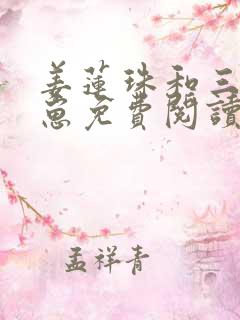 姜蓮珠和三
崽免費閱讀
孟祥青